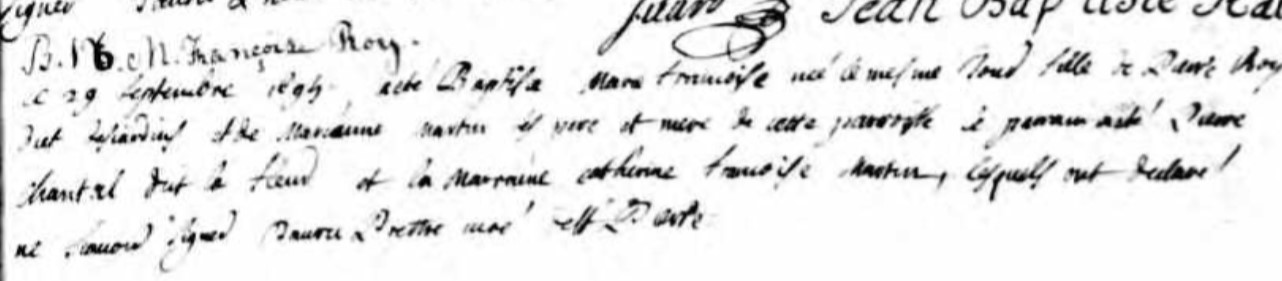 signer
Jean Baptiste
B. N. 6. M. Françoise Roy.
le 29 septembre a esté Baptisé marie francoise neé le mesme Jour fille de Pierre Roy
Dit desjardins et de Marianne martin ses pere et mere de cette parroisse le parrain a esté Pierre
chantal dit la fleur et la Marraine catherine francoise martin, lesquels ont declaré
ne sçavoir signer Prestre curé